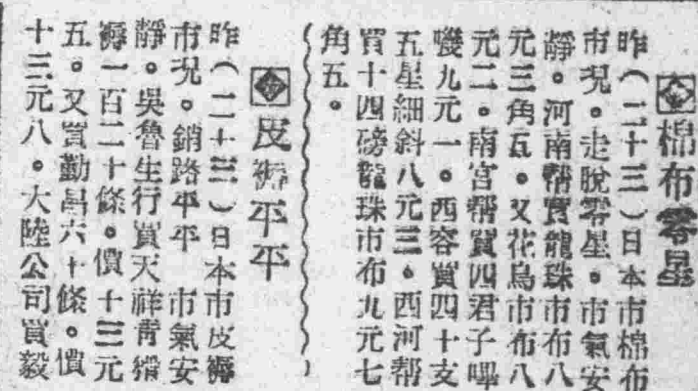 棉布零星
昨(二十三)日本市棉布
市况。走脫零星。市氣安
靜。河南幇買龍珠市布八
元三角五。又花鳥市布八
元二。南宮幇買四君子嗶
嘰九元一。西容買四十支
五星細斜八元三。西河帮
買十四磅龍珠市布九元七
角五。
皮褥平平
昨(二十三)日本市皮褥
市况。銷路平平 市氣安
靜。吳魯生行買天祥靑猾
褥一百二十條。價十三元
五。又買勤昌六十條。價
十三元八。大陸公司買毅